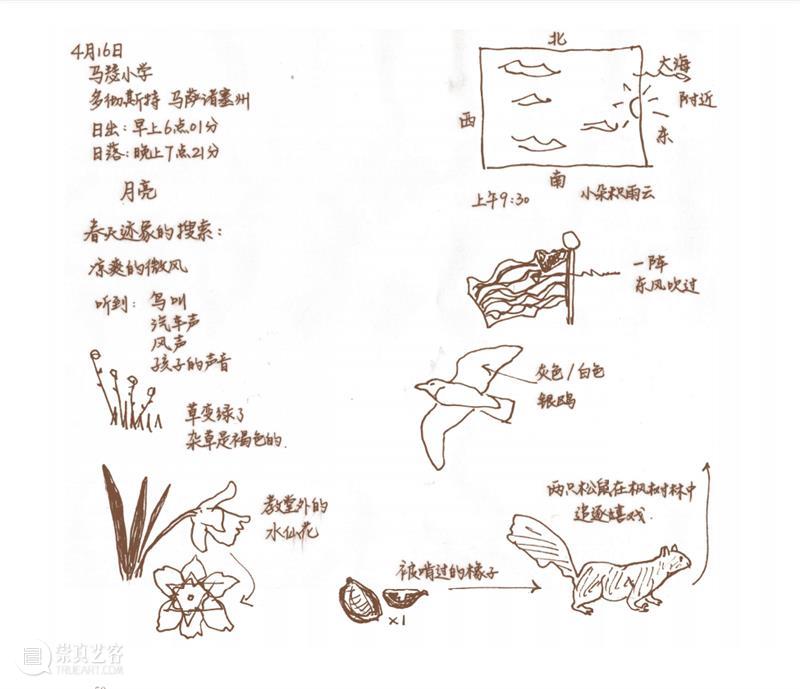 4月16日
马莛小学
多彻斯特 马萨诸塞州
日出：早上6点01分
日落：晚上7点21分
月亮
春天迹象的搜索：
凉爽的微风
听到：鸟叫
汽车声
风声
孩子的声音
草变绿了
杂草是褐色的.
教堂外的
水仙花
北
西
南
东
大海
附近
上午9:30
小朵积雨云
一阵
东风吹过
灰色/白色
银鸥
两只松鼠在枫树林中
追逐嬉戏.
被啃过的橡子
×1
崇真艺客
TRUEART.COM